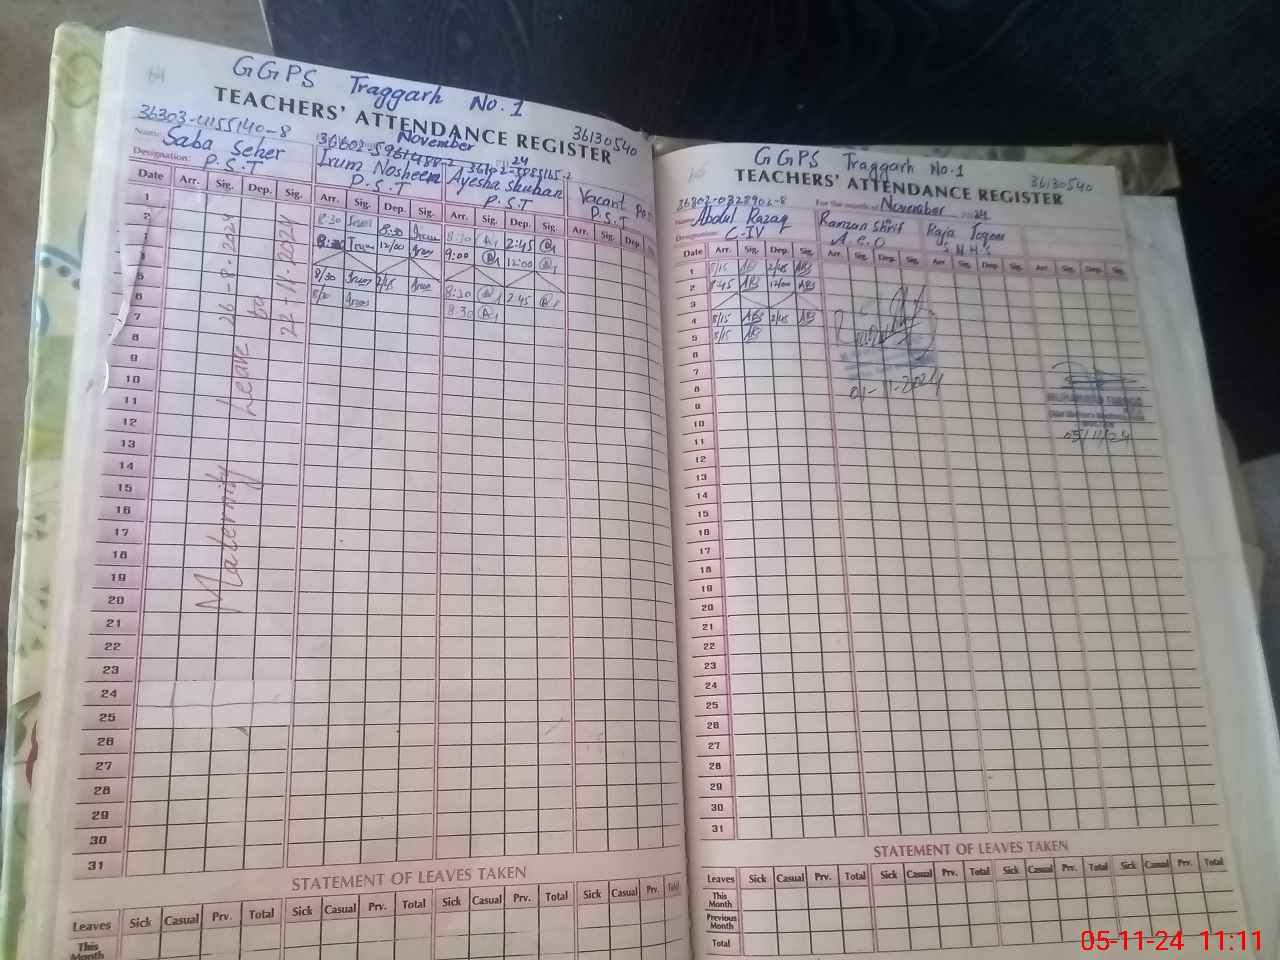 64
GGPS Traggarh No.1
TEACHERS' ATTENDANCE REGISTER
36303-4155140-8
November
24
36130540
Name: Saba Seher
Irum Nosheen
Ayesha Shaban
Vacant Post
Designation: P.S.T
P.S.T
P.S.T
P.S.T
Date Arr. Sig. Dep. Sig. Arr. Sig. Dep. Sig. Arr. Sig. Dep. Sig. Arr. Sig. Dep.
1 8:30 Irum 8:30 Irum 8:30 2:45
2 Irum 12/00 Irum 9:00 12:00
8/30 Irum 2/45 Irum 8:30 2:45
5 Irum 8:30
6
7
8
9
10
11
12
13
14
15
16
17
18
19
20
21
22
23
24
25
26
27
28
29
30
31
Maternity Leave 26-8-2024 to 22-11-2024
STATEMENT OF LEAVES TAKEN
Leaves Sick Casual Prv. Total Sick Casual Prv. Total Sick Casual Prv. Total Sick Casual Prv. Total
This Month
GGPS Traggarh No.1
TEACHERS' ATTENDANCE REGISTER
36130540
36302-0328902-8
For the month of November 24
Name Abdul Razaq
Ramzan Shrif
Raja
Designation: C-IV
A.E.O
Date Arr. Sig. Dep. Sig. Arr. Sig. Dep. Sig. Arr. Sig. Dep. Sig. Arr. Sig. Dep. Sig.
1 8/15 AB 2/45 AB
2 8:45 AB 12/00 AB
3
4 8/15 AB 2/45 AB
5 8/15 AB
6
7
8
9
10
11
12
13
14
15
16
17
18
19
20
21
22
23
24
25
26
27
28
29
30
31
01-11-2024
05/11/24
STATEMENT OF LEAVES TAKEN
Leaves Sick Casual Prv. Total Sick Casual Prv. Total Sick Casual Prv. Total Sick Casual Prv. Total
This Month
Previous Month
Total
05-11-24 11:11